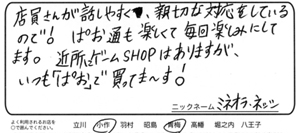 店員さんが話しやすく、親切な対応をしている
ので！ ぱお通も楽しくて毎回楽しみにして
ます。近所にゲームSHOPはありますが、
いつも「ぱお」で買ってま〜す！
ニックネーム ミネオラ・ネッシー
よく利用されるお店を
○で囲んでください。
立川 小作 羽村 昭島 青梅 高幡 堀之内 八王子